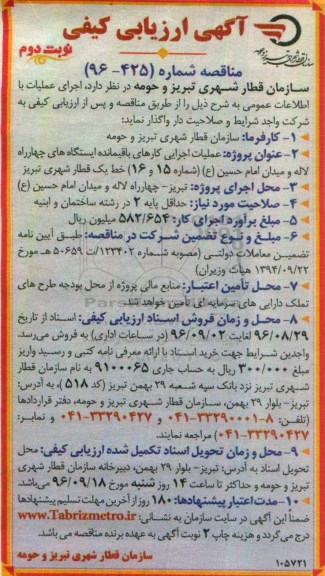 آگهی ارزیابی کیفی
نوبت دوم
مناقصه شماره (۴۲۵- ۹۶)
سازمان قطار شهری تبریز و حومه در نظر دارد، اجرای عملیات با
اطلاعات عمومی به شرح ذیل را از طریق مناقصه و پس از ارزیابی کیفی به
شرکت واجد شرایط و صلاحیت دار واگذار نماید:
۱- کارفرما: سازمان قطار شهری تبریز و حومه
۲- عنوان پروژه: عملیات اجرایی کارهای باقیمانده ایستگاه های چهارراه
لاله و میدان امام حسین (ع) (شماره ۱۵ و ۱۶) خط یک قطار شهری تبریز
۳- محل اجرای پروژه: تبریز- چهارراه لاله و میدان امام حسین (ع)
۴- صلاحیت مورد نیاز: حداقل پایه ۲ در رشته ساختمان و ابنیه
۵- مبلغ برآورد اجرای کار: ۵۸۲/۶۵۴ میلیون ریال
۶- مبلغ و نوع تضمین شرکت در مناقصه: طبق آیین نامه
تضمین معاملات دولتی (مصوبه شماره ۱۲۳۴۰۲/ت ۵۰۶۵۹ هـ مورخ
۱۳۹۴/۰۹/۲۲ هیأت وزیران)
۷- محل تأمین اعتبار: منابع مالی پروژه از محل بودجه طرح های
تملک دارایی های سرمایه ای تأمین خواهد شد.
۸- محل و زمان فروش اسناد ارزیابی کیفی: اسناد از تاریخ
۹۶/۰۸/۲۹ لغایت ۹۶/۰۹/۰۲ (در ساعات اداری) به فروش می‌رسد.
واجدین شرایط جهت خرید اسناد با ارائه معرفی نامه کتبی و رسید واریز
مبلغ ۳۰۰/۰۰۰ ریال به حساب جاری ۹۱۰۰۰۶۵ به نام سازمان قطار
شهری تبریز نزد بانک سپه شعبه ۲۹ بهمن تبریز (کد ۵۱۸)، به آدرس:
تبریز- بلوار ۲۹ بهمن، سازمان قطار شهری تبریز و حومه، دفتر قراردادها
(تلفن: ۸-۳۳۲۹۰۰۰۱-۰۴۱ و ۳۳۲۹۰۴۲۷-۰۴۱ و نمابر:
۳۳۲۹۰۴۲۷-۰۴۱) مراجعه نمایند.
۹- محل و زمان تحویل اسناد تکمیل شده ارزیابی کیفی: محل
تحویل اسناد به آدرس: تبریز- بلوار ۲۹ بهمن، دبیرخانه سازمان قطار شهری
تبریز و حومه و حداکثر تا ساعت ۱۴ روز شنبه مورخ ۹۶/۰۹/۱۸ می‌باشد.
۱۰- مدت اعتبار پیشنهادها: ۱۸۰ روز از آخرین مهلت تسلیم پیشنهادها
ضمناً این آگهی در سایت سازمان به نشانی: www.Tabrizmetro.ir
درج می‌گردد و هزینه چاپ ۲ نوبت آگهی به عهده برنده مناقصه می باشد.
سازمان قطار شهری تبریز و حومه
۱۰۵۷۲۱